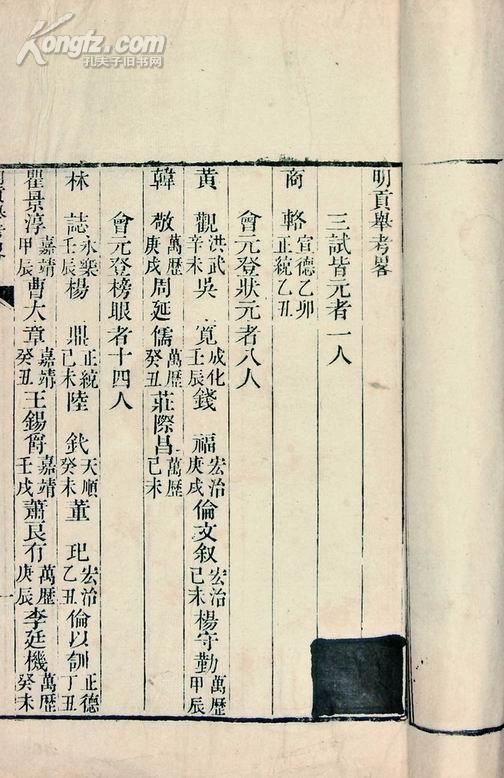 Kongfz.com
孔夫子旧书网
明貢舉考畧
三試皆元者一人
商輅宣德乙卯正統乙丑
會元登狀元者八人
黃觀洪武辛未吳寬成化壬辰錢福宏治庚戌倫文叙宏治己未楊守勤萬歷甲辰
韓敬萬歷庚戌周延儒萬歷癸丑莊際昌萬歷己未
會元登榜眼者十四人
林誌永樂壬辰楊鼎正統己未陸釴天順癸未董玘宏治乙丑倫以訓正德丁丑
瞿景淳嘉靖甲辰曹大章嘉靖癸丑王錫爵嘉靖壬戌蕭良有萬歷庚辰李廷機萬歷癸未